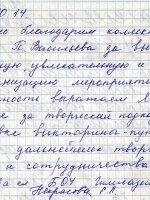 О 14.
благодарим коллек
П. Васильева за вы
увлекательную и
низацию мероприяти
мость выражаем
за творческий подхо
викторины-пу
дальнейшего твор
и сотрудничества
БОУ Гимназии
Некрасова